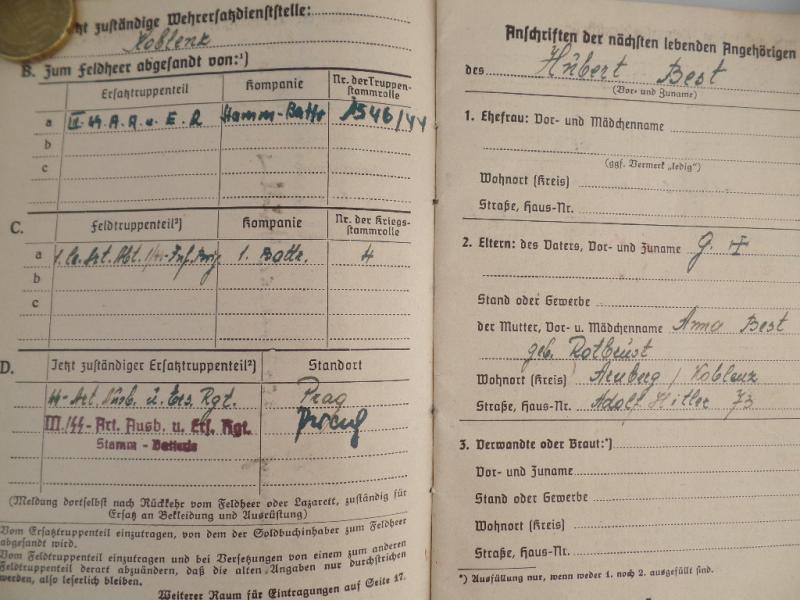 zt zuständige Wehrersatzdienststelle:
Koblenz
B. Zum Feldheer abgesandt von:¹)
Ersatztruppenteil
Kompanie
Nr. der Truppen-
stammrolle
a
III. SS. A. A. u. E. R
Stamm-Battr
1546/44
b
c
C.
Feldtruppenteil²)
Kompanie
Nr. der Kriegs-
stammrolle
a
1. Battr.
4
b
c
D.
Jetzt zuständiger Ersatztruppenteil²)
Standort
SS-Art. Ausb. u. Ers. Rgt.
Prag
III./SS-Art. Ausb. u. Ers. Rgt.
Stamm - Batterie
(Meldung dortselbst nach Rückkehr vom Feldheer oder Lazarett, zuständig für
Ersatz an Bekleidung und Ausrüstung)
Vom Ersatztruppenteil einzutragen, von dem der Soldbuchinhaber zum Feldheer
abgesandt wird.
Vom Feldtruppenteil einzutragen und bei Versetzungen von einem zum anderen
Feldtruppenteil derart abzuändern, daß die alten Angaben nur durchstrichen
werden, also leserlich bleiben.
Weiterer Raum für Eintragungen auf Seite 17.
Anschriften der nächsten lebenden Angehörigen
des Hubert Best
(Vor- und Zuname)
1. Ehefrau: Vor- und Mädchenname
(ggf. Vermerk „ledig")
Wohnort (Kreis)
Straße, Haus-Nr.
2. Eltern: des Vaters, Vor- und Zuname
Stand oder Gewerbe
der Mutter, Vor- u. Mädchenname Anna Best
geb. Rotbrust
Wohnort (Kreis) Arenberg / Koblenz
Straße, Haus-Nr. Adolf Hitler 73
3. Verwandte oder Braut:*)
Vor- und Zuname
Stand oder Gewerbe
Wohnort (Kreis)
Straße, Haus-Nr.
*) Ausfüllung nur, wenn weder 1. noch 2. ausgefüllt sind.